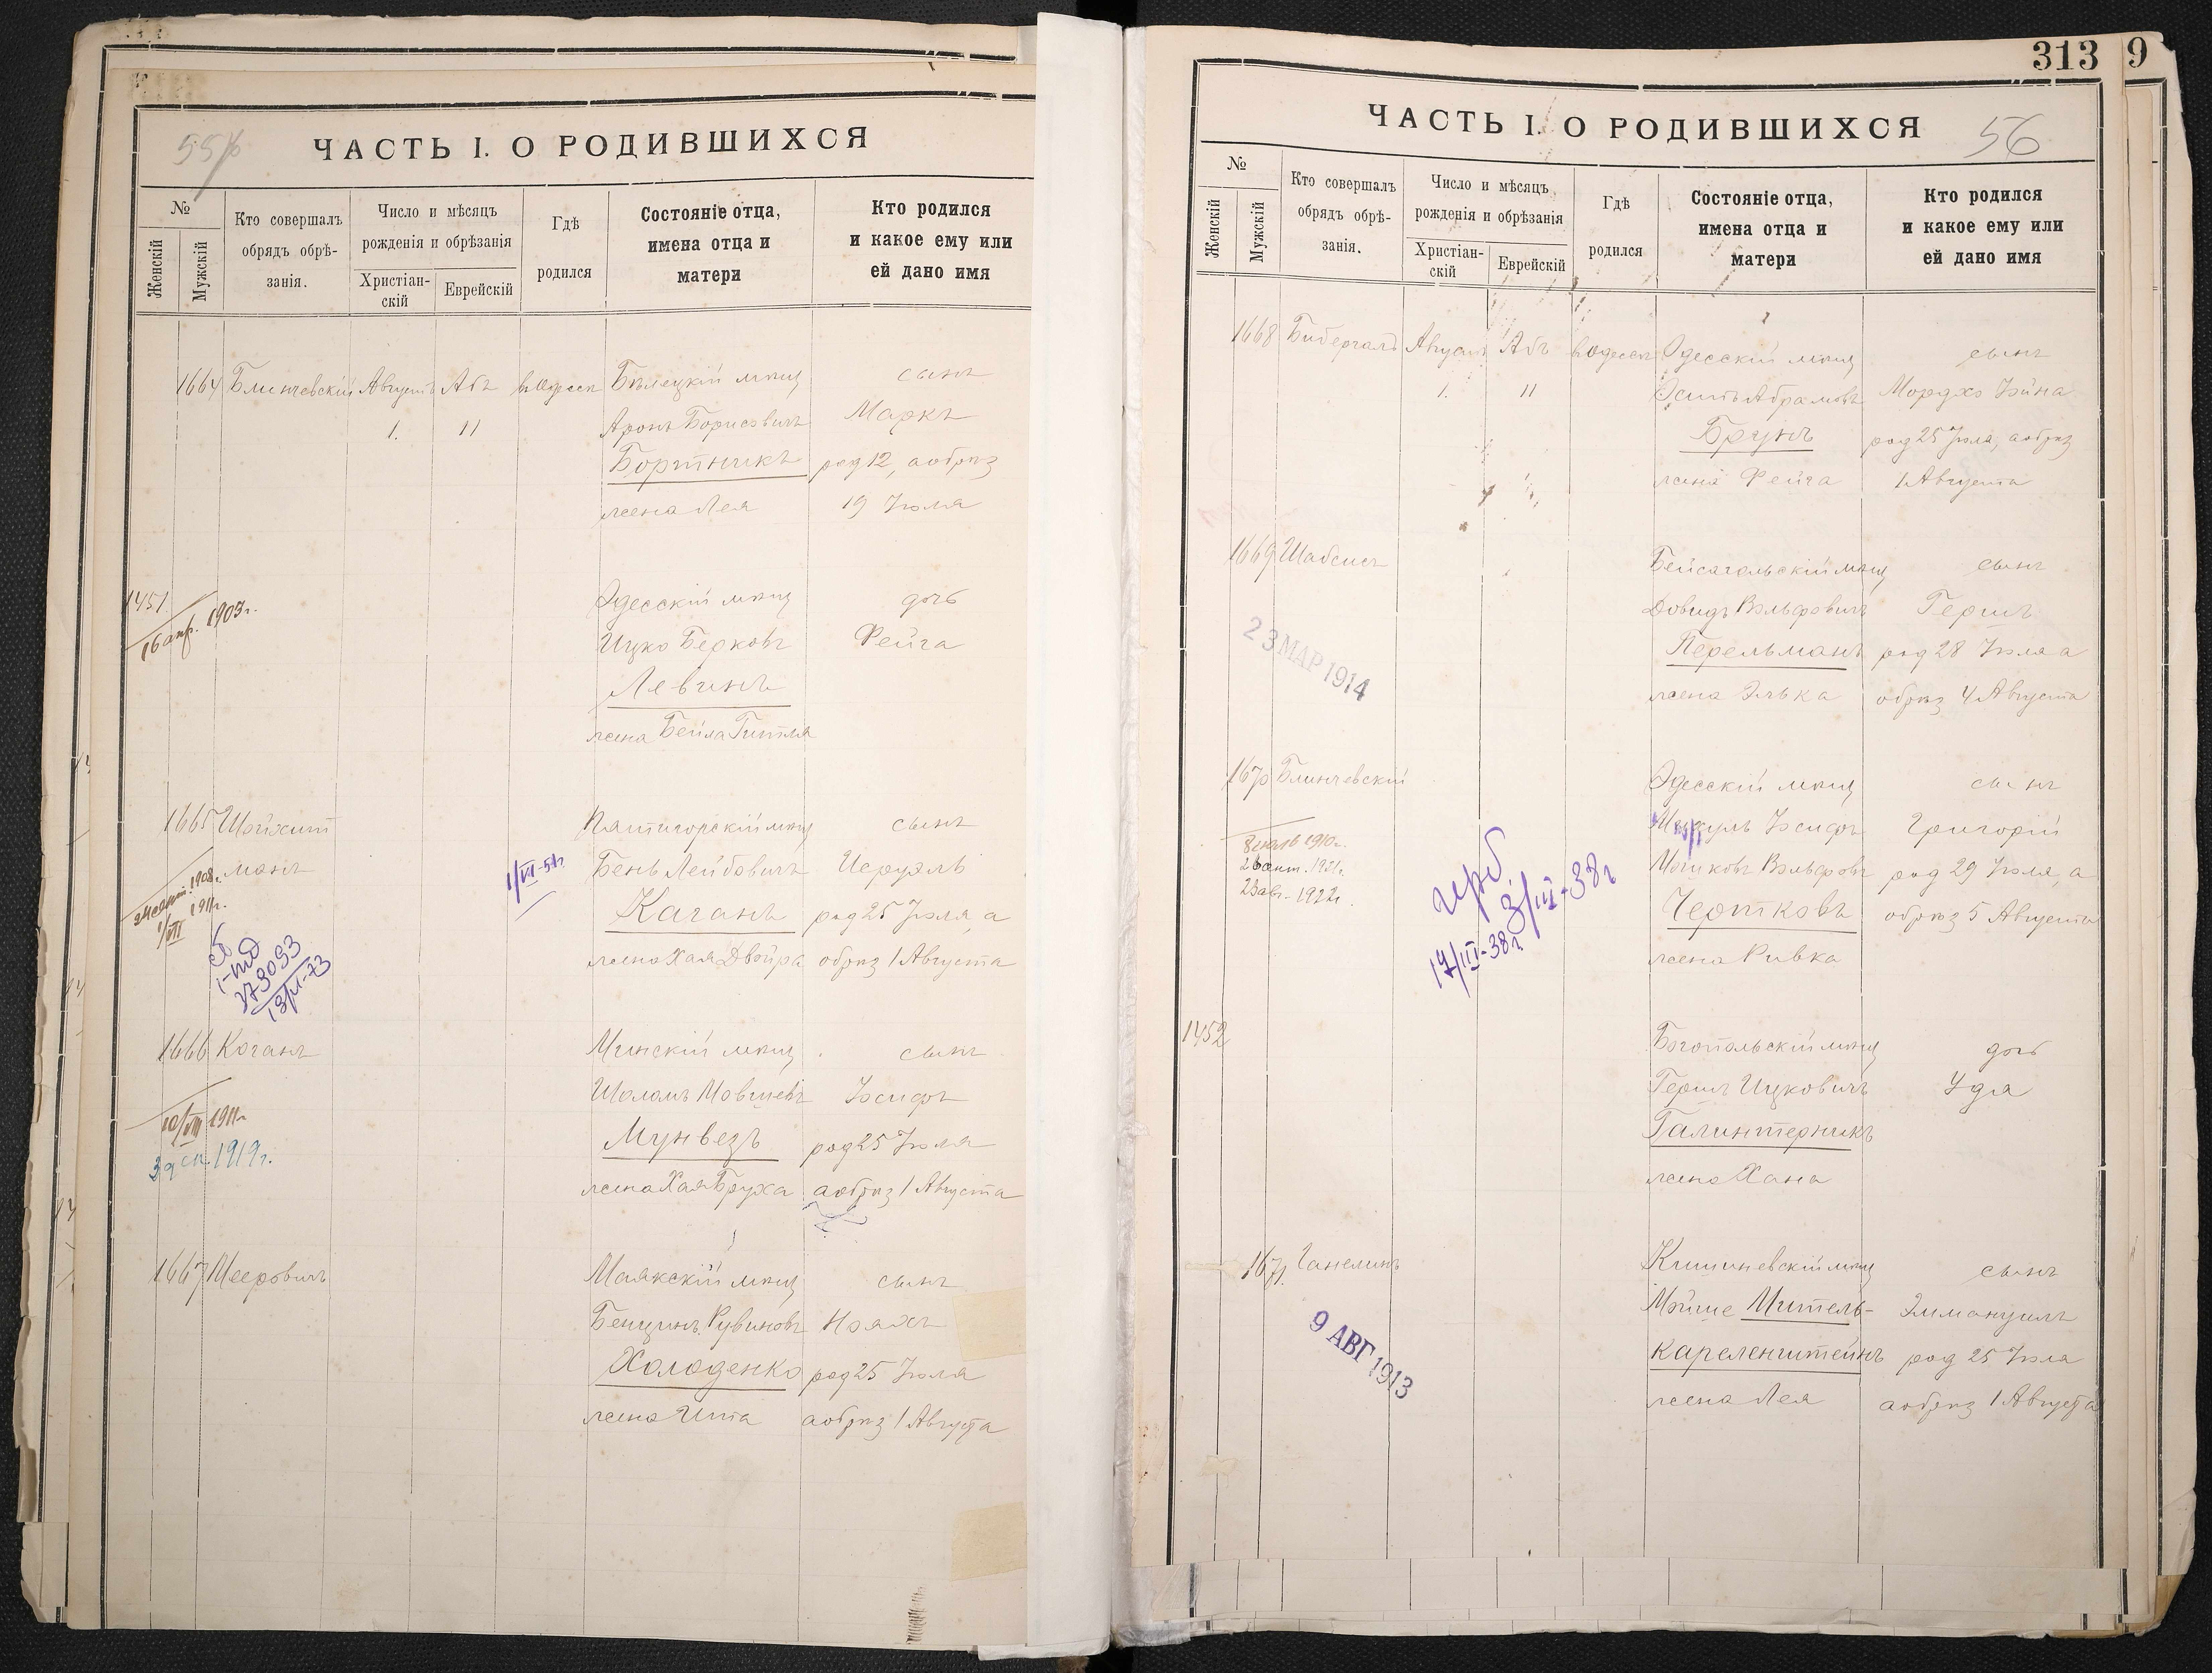 ЧАСТЬ I. О РОДИВШИХСЯ
№
Женскій
Мужскій
Кто совершалъ
обрядъ обрѣ-
занія.
Число и мѣсяцъ
рожденія и обрѣзанія
Христіан-
скій
Еврейскій
Гдѣ
родился
Состояніе отца,
имена отца и
матери
Кто родился
и какое ему или
ей дано имя
1664 Блинчевскій Августъ Абъ в Одессѣ Бѣлецкій мѣщ сынъ
1. 11 Аронъ Борисовичъ Маркъ
Бортникъ род 12, а обрѣз
жена Лея 19 Іюля
1451 Одесскій мѣщ дочь
16 апр. 1903г.
Ицко Берковъ Фейга
Левинъ
жена Бейла Гитля
1665 Шойхит Пятигорскій мѣщ сынъ
манъ 1/VII-51г. Бень Лейбовичъ Исруэль
1908г.
1911г.
1/VII
Каганъ род 25 Іюля, а
жена Хая Двойра обрѣз 1 Августа
1666 Коганъ Минскій мѣщ сынъ
Шоломъ Мовшевъ Іосифъ
10/VIII 1911г
1919г.
Мунвезъ род 25 Іюля
жена Хая Бруха а обрѣз 1 Августа
1667 Мееровичъ Маякскій мѣщ сынъ
Бенционъ Рувиновъ Нояхъ
Холоденко род 25 Іюля
жена Ита а обрѣз 1 Августа
313
9
ЧАСТЬ I. О РОДИВШИХСЯ
56
№
Женскій
Мужскій
Кто совершалъ
обрядъ обрѣ-
занія.
Число и мѣсяцъ
рожденія и обрѣзанія
Христіан-
скій
Еврейскій
Гдѣ
родился
Состояніе отца,
имена отца и
матери
Кто родился
и какое ему или
ей дано имя
1668 Бибергалъ Августъ Абъ в Одессѣ Одесскій мѣщ сынъ
1. 11 Абрамовъ Мордхо Іойна
Брунъ род 25 Іюля, а обрѣз
жена Фейга 1 Августа
1669 Шабсисъ Бейсагольскій мѣщ сынъ
Довидъ Вольфовичъ Гершъ
23 МАР 1914
Перельманъ род 28 Іюля а
жена Элька обрѣз 4 Августа
1670 Блинчевскій Одесскій мѣщ сынъ
Іосифъ Григорій
1910г.
1921г.
1922г.
Мошковъ Вольфовъ род 29 Іюля, а
герб.
3/III-38г
17/III-38г.
Чертковъ обрѣз 5 Августа
жена Ривка
1452 Богопольскій мѣщ дочь
Гершъ Ицковичъ Удя
Галинтерникъ
жена Хана
1671. Ганелинъ Кишиневскій мѣщ сынъ
Мойше Митель- Эммануилъ
9 АВГ 1913
род 25 Іюля
жена Лея а обрѣз 1 Августа